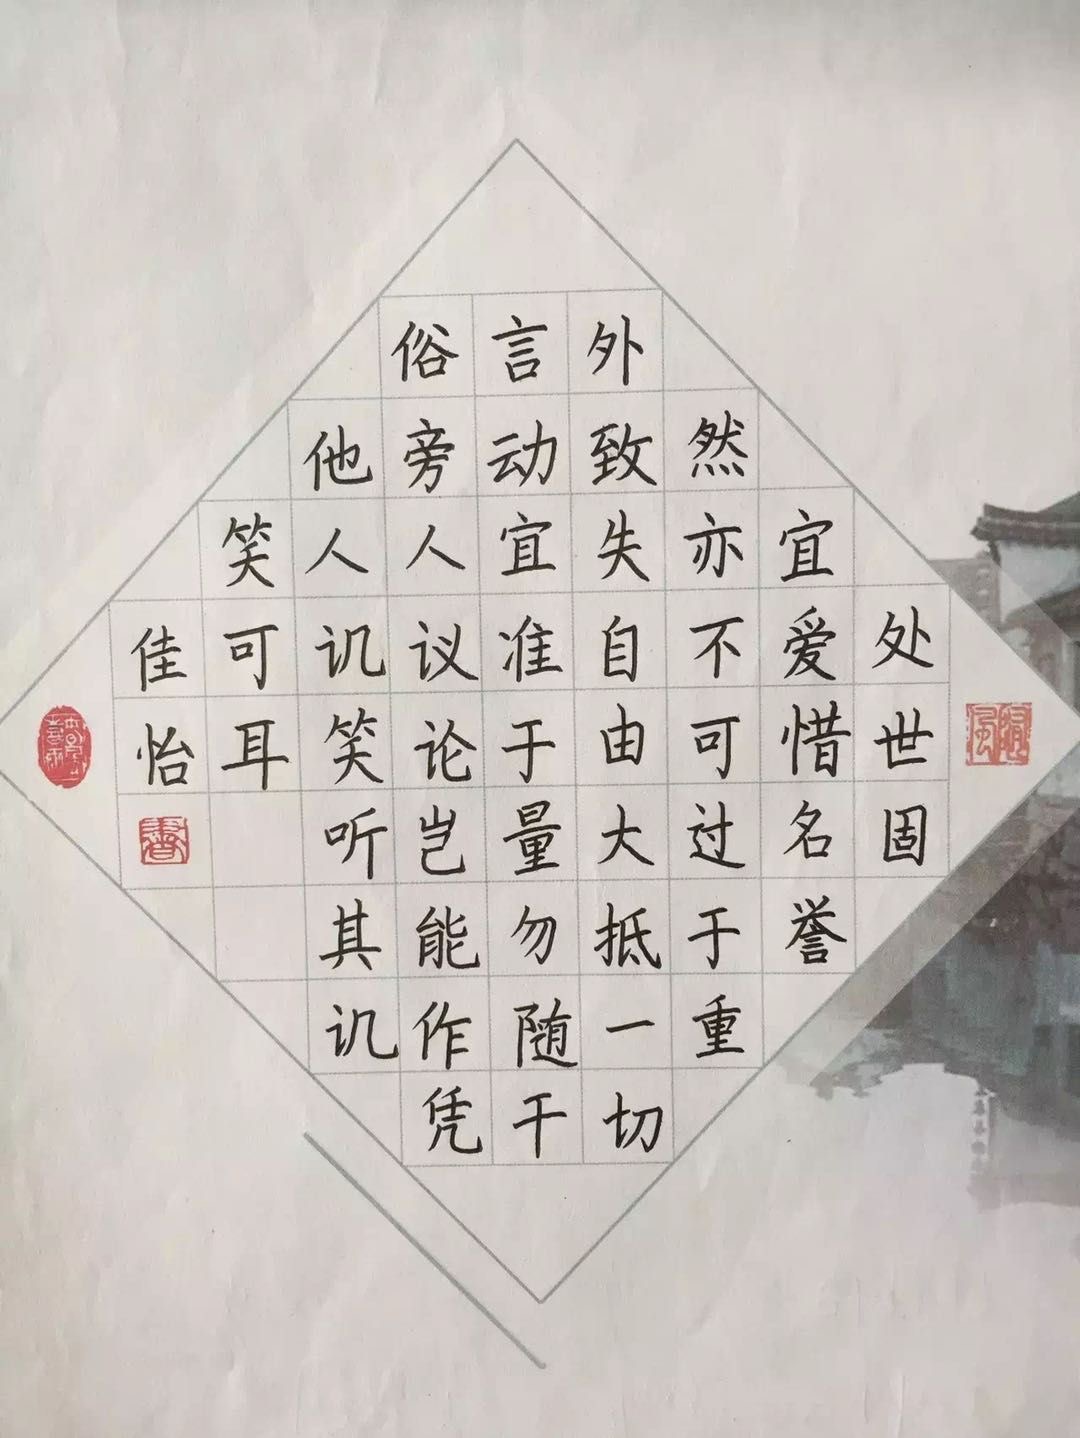 处世固
宜爱惜名誉
然亦不可过于重
外致失自由大抵一切
言动宜准于量勿随干
俗旁人议论岂能作凭
他人讥笑听其讥
笑可耳
佳怡